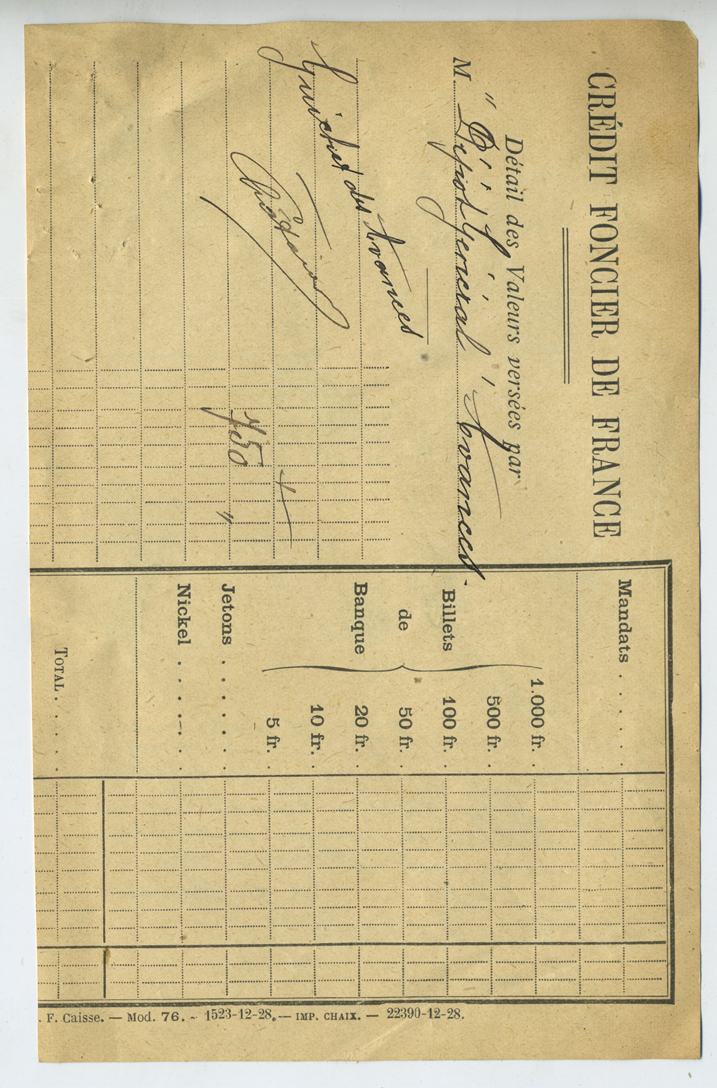 CRÉDIT FONCIER DE FRANCE
Détail des Valeurs versées par
M. " Dépôt Général, Avances.
Guichet des Avances
750 "
Mandats . . . . .
Billets de Banque
1.000 fr. .
500 fr. .
100 fr. .
50 fr. .
20 fr. .
10 fr. .
5 fr. .
Jetons . . . . . .
Nickel . . . . . .
TOTAL . . . . .
. F. Caisse. — Mod. 76. - 1523-12-28. — IMP. CHAIX. — 22390-12-28.